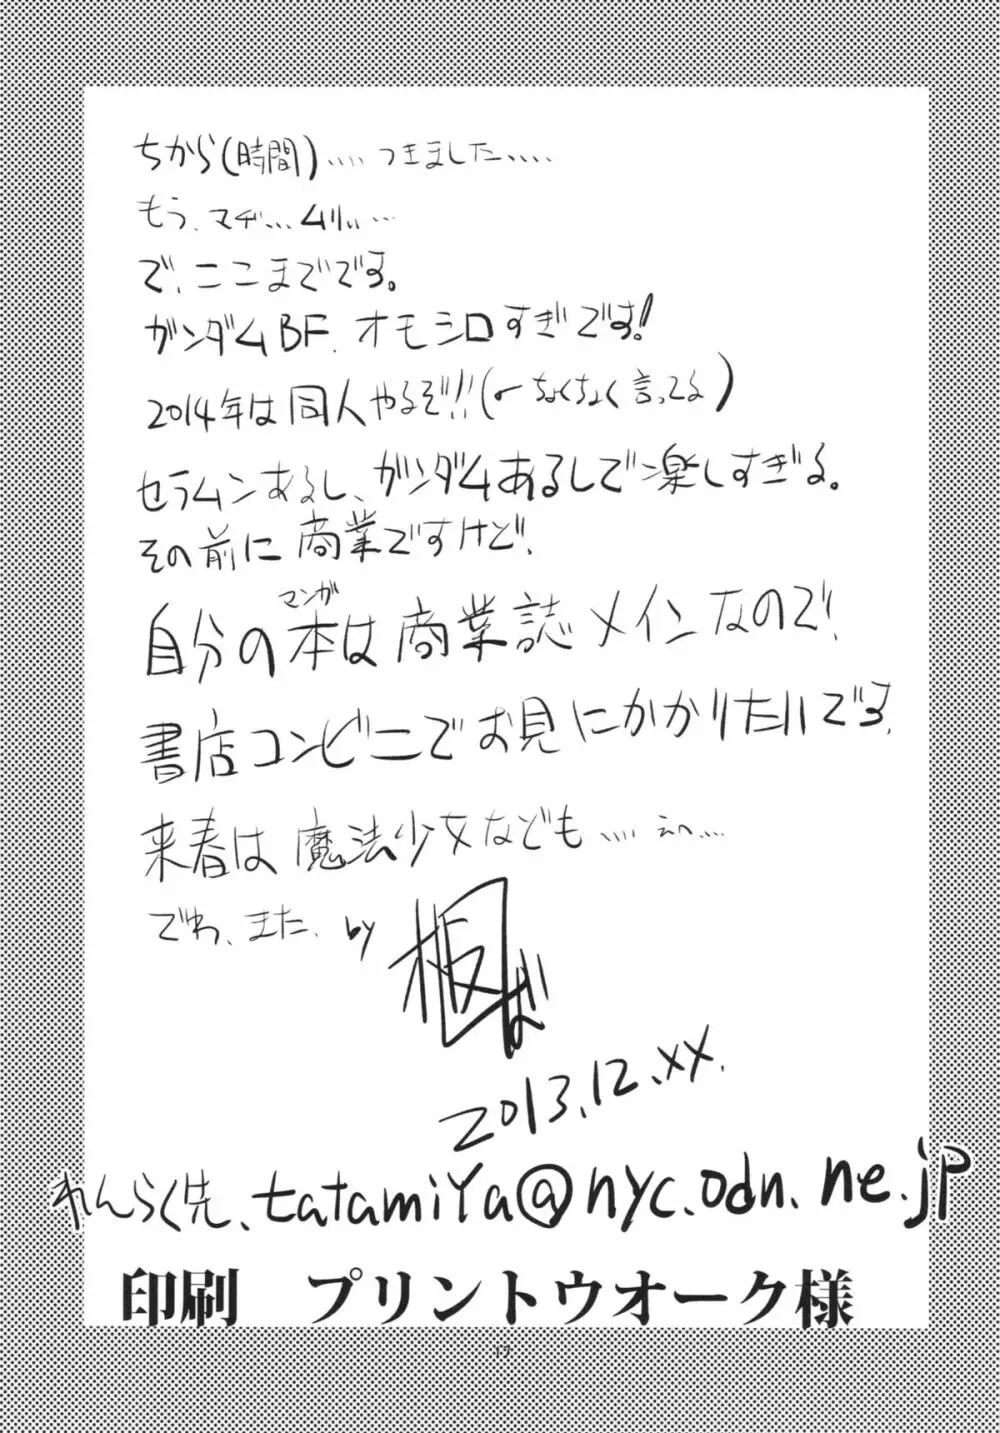 ちから(時間)....つきました....
もう、マヂ...ムリぃ...
で、ここまでです。
ガンダムBF.オモシロすぎです!
2014年は同人やるぞ!!(←ちょくちょく言ってる)
セラムンあるし、ガンダムあるしで楽しすぎる。
その前に商業ですけど!
マンガ
自分の本は商業誌メインなので!
書店コンビニでお見にかかりたいです.
来春は魔法少女なども....えへ....
でわ、また. by
2013.12.XX.
れんらく先、tatamiya@nyc.odn.ne.jp
印刷 プリントウオーク様
17